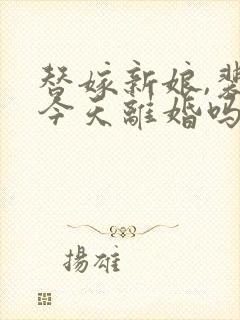 替嫁新娘,裴
今天離婚嗎
揚雄